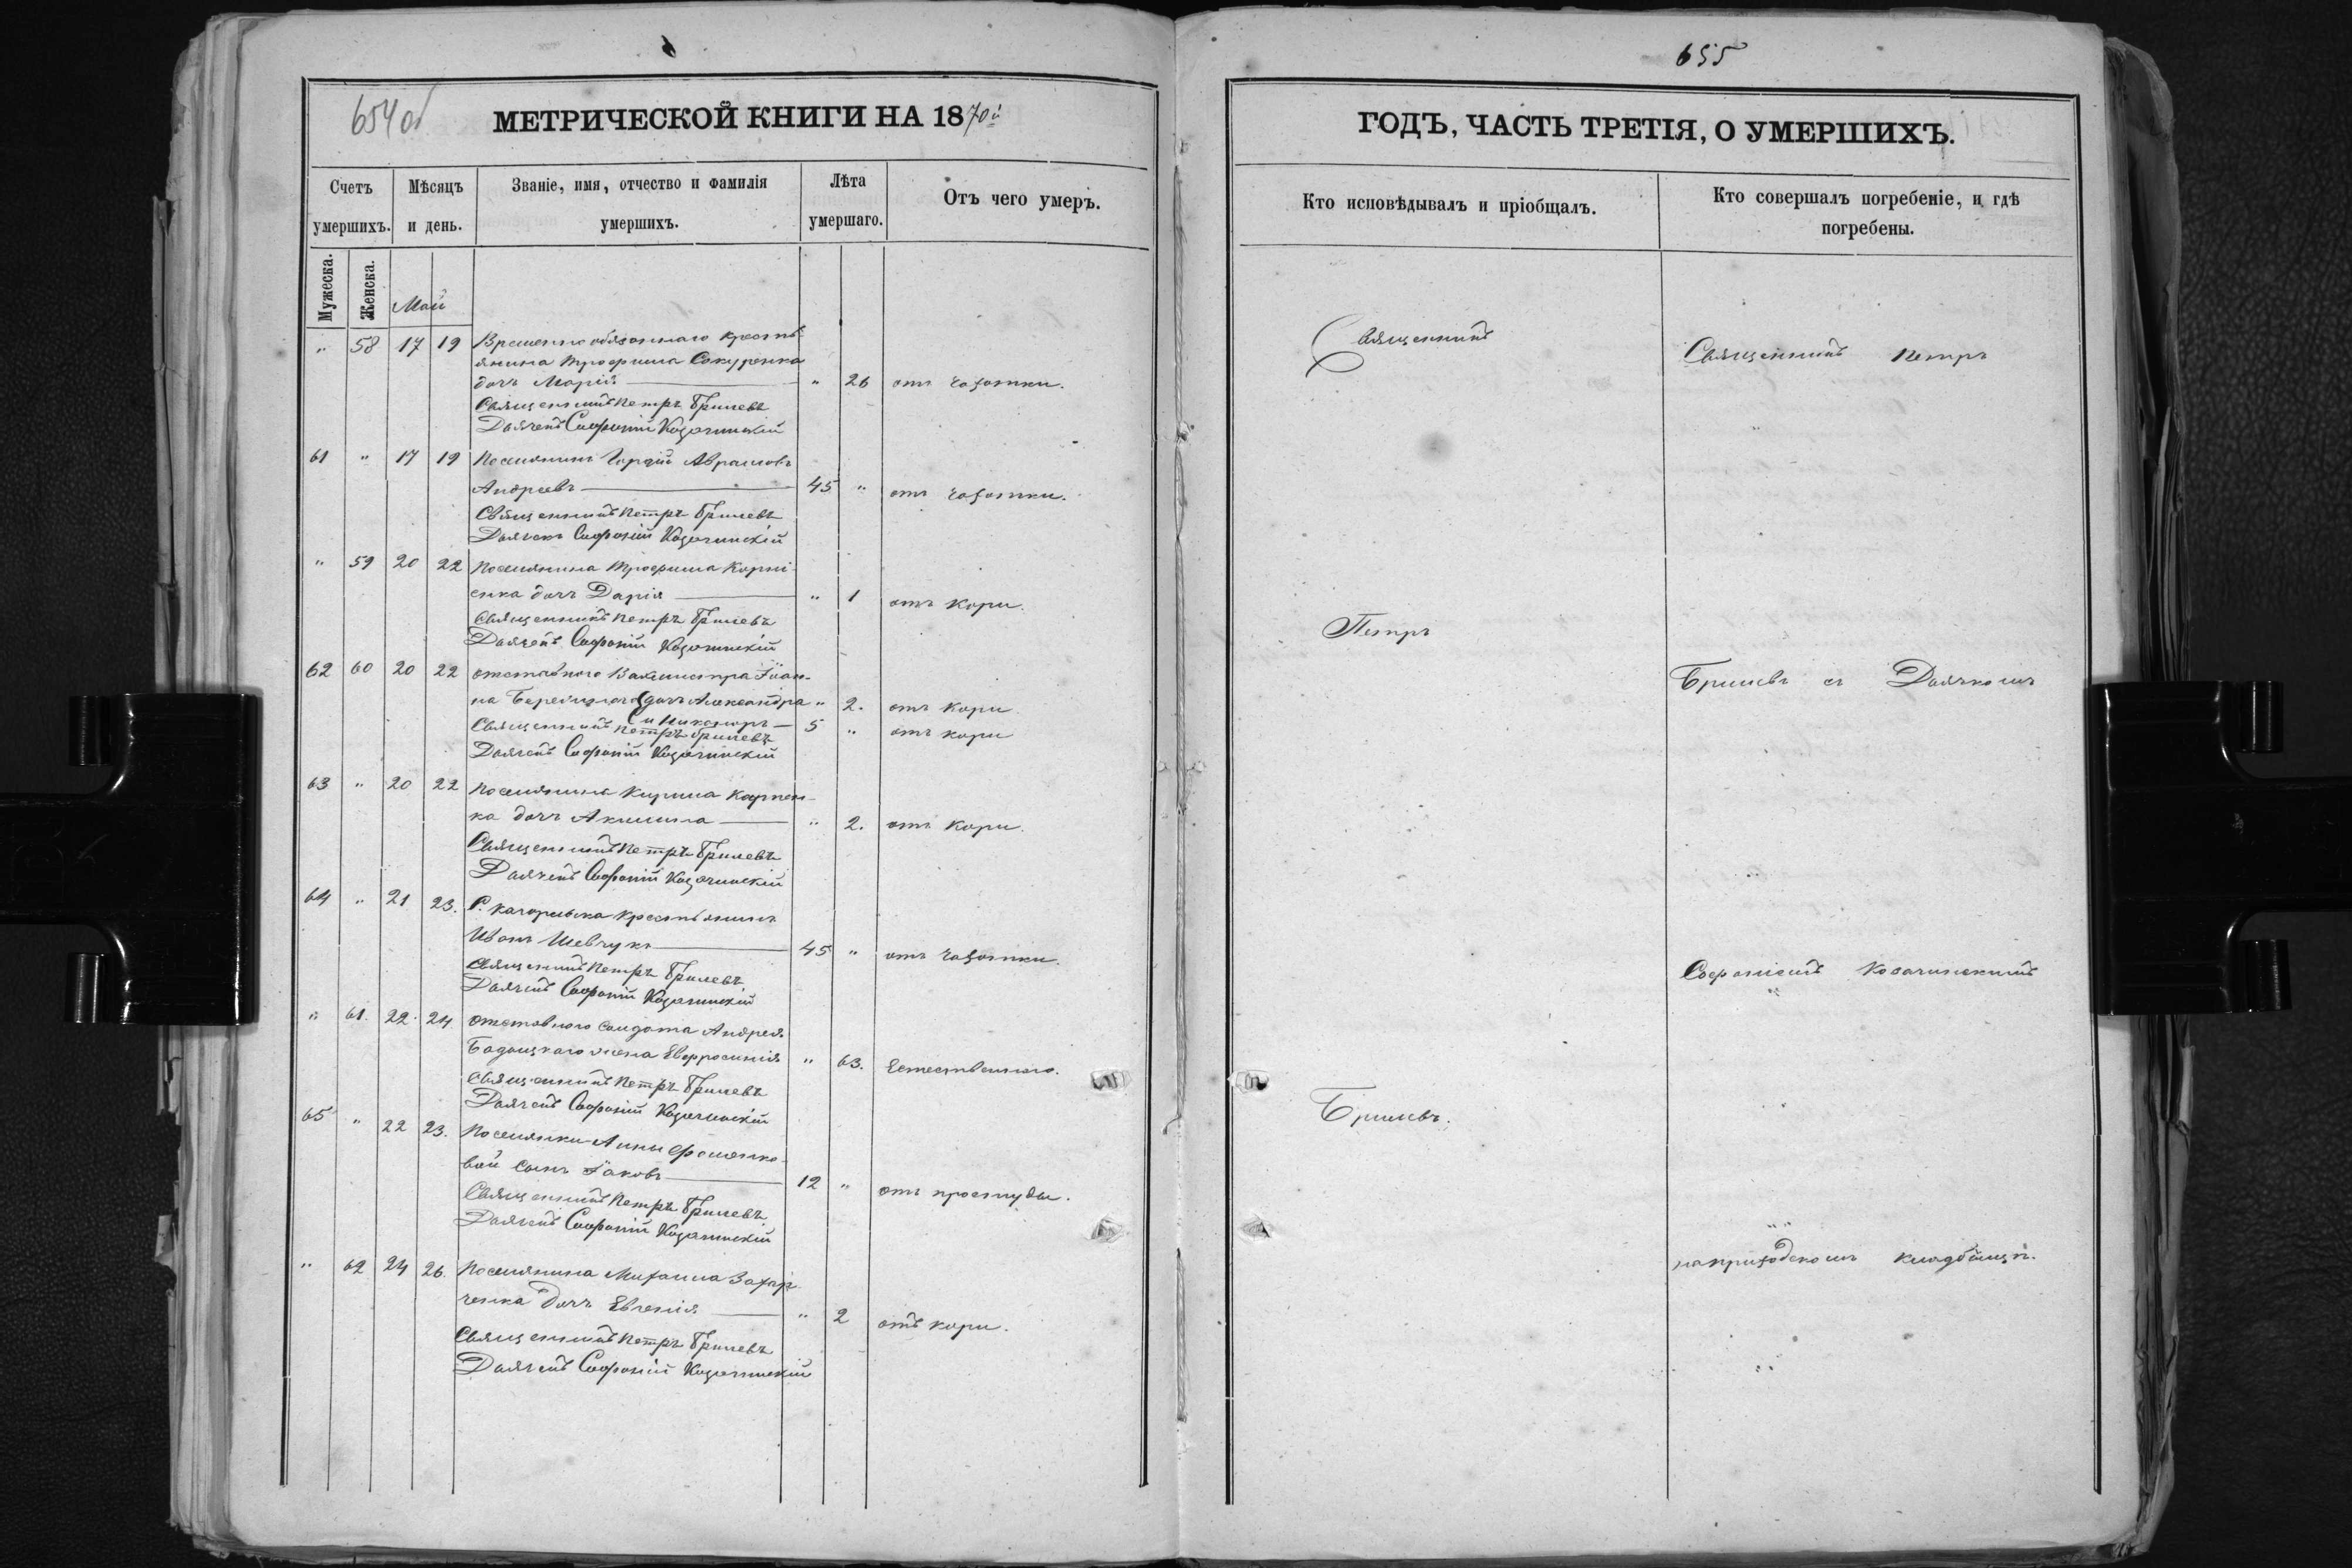 654об
МЕТРИЧЕСКОЙ КНИГИ НА 1870й
Счетъ умершихъ.
Мѣсяцъ и день.
Званіе, имя, отчество и фамилія умершихъ.
Лѣта умершаго.
Отъ чего умеръ.
Мужеска.
Женска.
Май
" 58 17 19 Временно обязаннаго кресть-
янина Трофима Сокуренка
дочь Марія " 26 отъ чахотки.
Священникъ Петръ Брилевъ
Дьячекъ Софроній Козачинскій
61 " 17 19 Поселянинъ Гордій Аврамовъ
Андреевъ 45 " отъ чахотки.
Священникъ Петръ Брилевъ
Дьячекъ Софроній Козачинскій
" 59 20 22 Поселянина Трофима Корні-
енка дочь Дарія " 1 отъ кори.
Священникъ Петръ Брилевъ
Дьячекъ Софроній Козачинскій
62 60 20 22 отставного Вахмистра Іоан-
на дочь Александра " 2. отъ кори
и Никаноръ 5 " отъ кори
Священникъ Петръ Брилевъ
Дьячекъ Софроній Козачинскій
63 " 20 22 Поселянина Кирила Карпен-
ка дочь Акилина " 2. отъ кори.
Священникъ Петръ Брилевъ
Дьячекъ Софроній Козачинскій
64 " 21 23. С. крестьянинъ
Иванъ Шевчукъ 45 " отъ чахотки.
Священникъ Петръ Брилевъ
Дьячекъ Софроній Козачинскій
" 61. 22. 24 отставного солдата Андрея
жена Евфросинія " 63. Естественною.
Священникъ Петръ Брилевъ
Дьячекъ Софроній Козачинскій
65 " 22 23. Поселянки Анны Фоменко-
вой сынъ Іаковъ 12 " отъ простуды.
Священникъ Петръ Брилевъ
Дьячекъ Софроній Козачинскій
" 62 24 26. Поселянина Михаила Захар-
ченка дочь Евгенія " 2 отъ кори.
Священникъ Петръ Брилевъ
Дьячекъ Софроній Козачинскій
655
ГОДЪ, ЧАСТЬ ТРЕТІЯ, О УМЕРШИХЪ.
Кто исповѣдывалъ и пріобщалъ.
Кто совершалъ погребеніе, и гдѣ погребены.
Священникъ
Петръ
Брилевъ.
Священникъ Петръ
Брилевъ съ Дьячкомъ
Софроніемъ Козачинскимъ
на приходскомъ кладбищѣ.